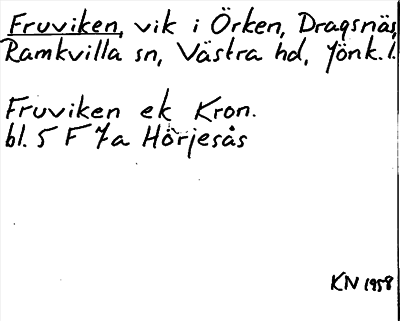 Fruviken, vik i Örken, Dragsnäs,
Ramkvilla sn, Västra hd, Jönk. l.
Fruviken ek Kron.
bl. 5 F 7a Hörjesås
KN 1958